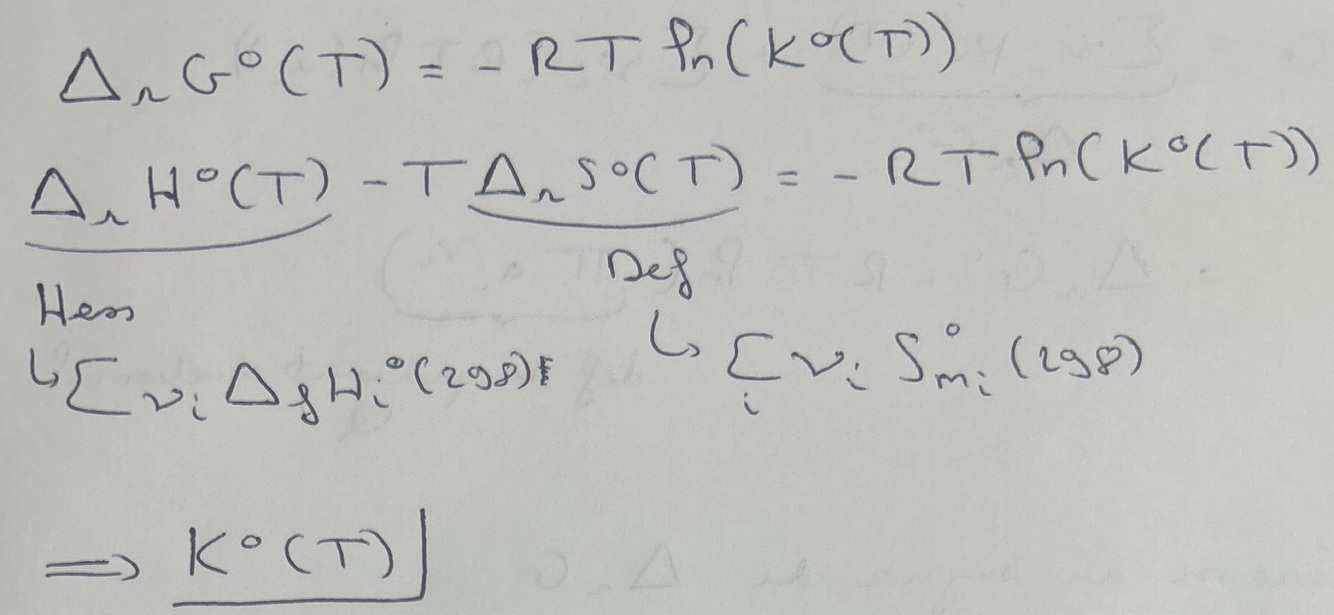 Δ_r G°(T) = - RT ln(K°(T))
Δ_r H°(T) - T Δ_r S°(T) = - RT ln(K°(T))
Hess
Def
↳ Σ ν_i Δ_f H_i°(298)
↳ Σ_i ν_i S°_{m_i}(298)
⟹ K°(T)